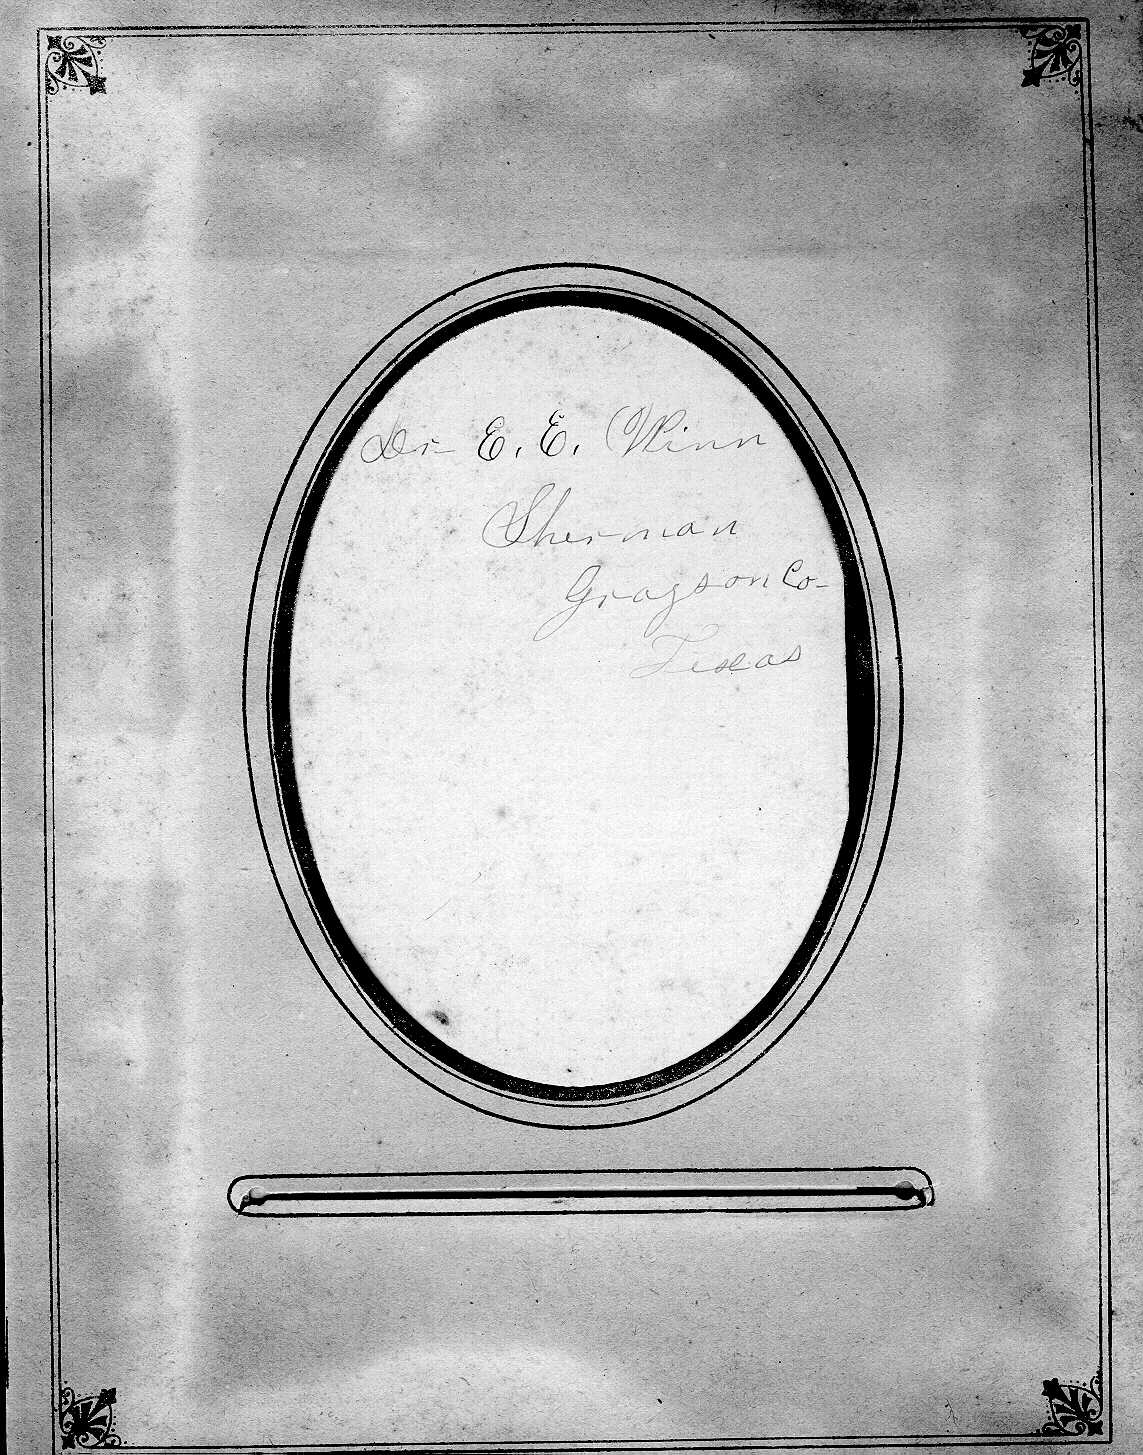 Dr E. E. Winn
Sherman
Grayson Co-
Texas